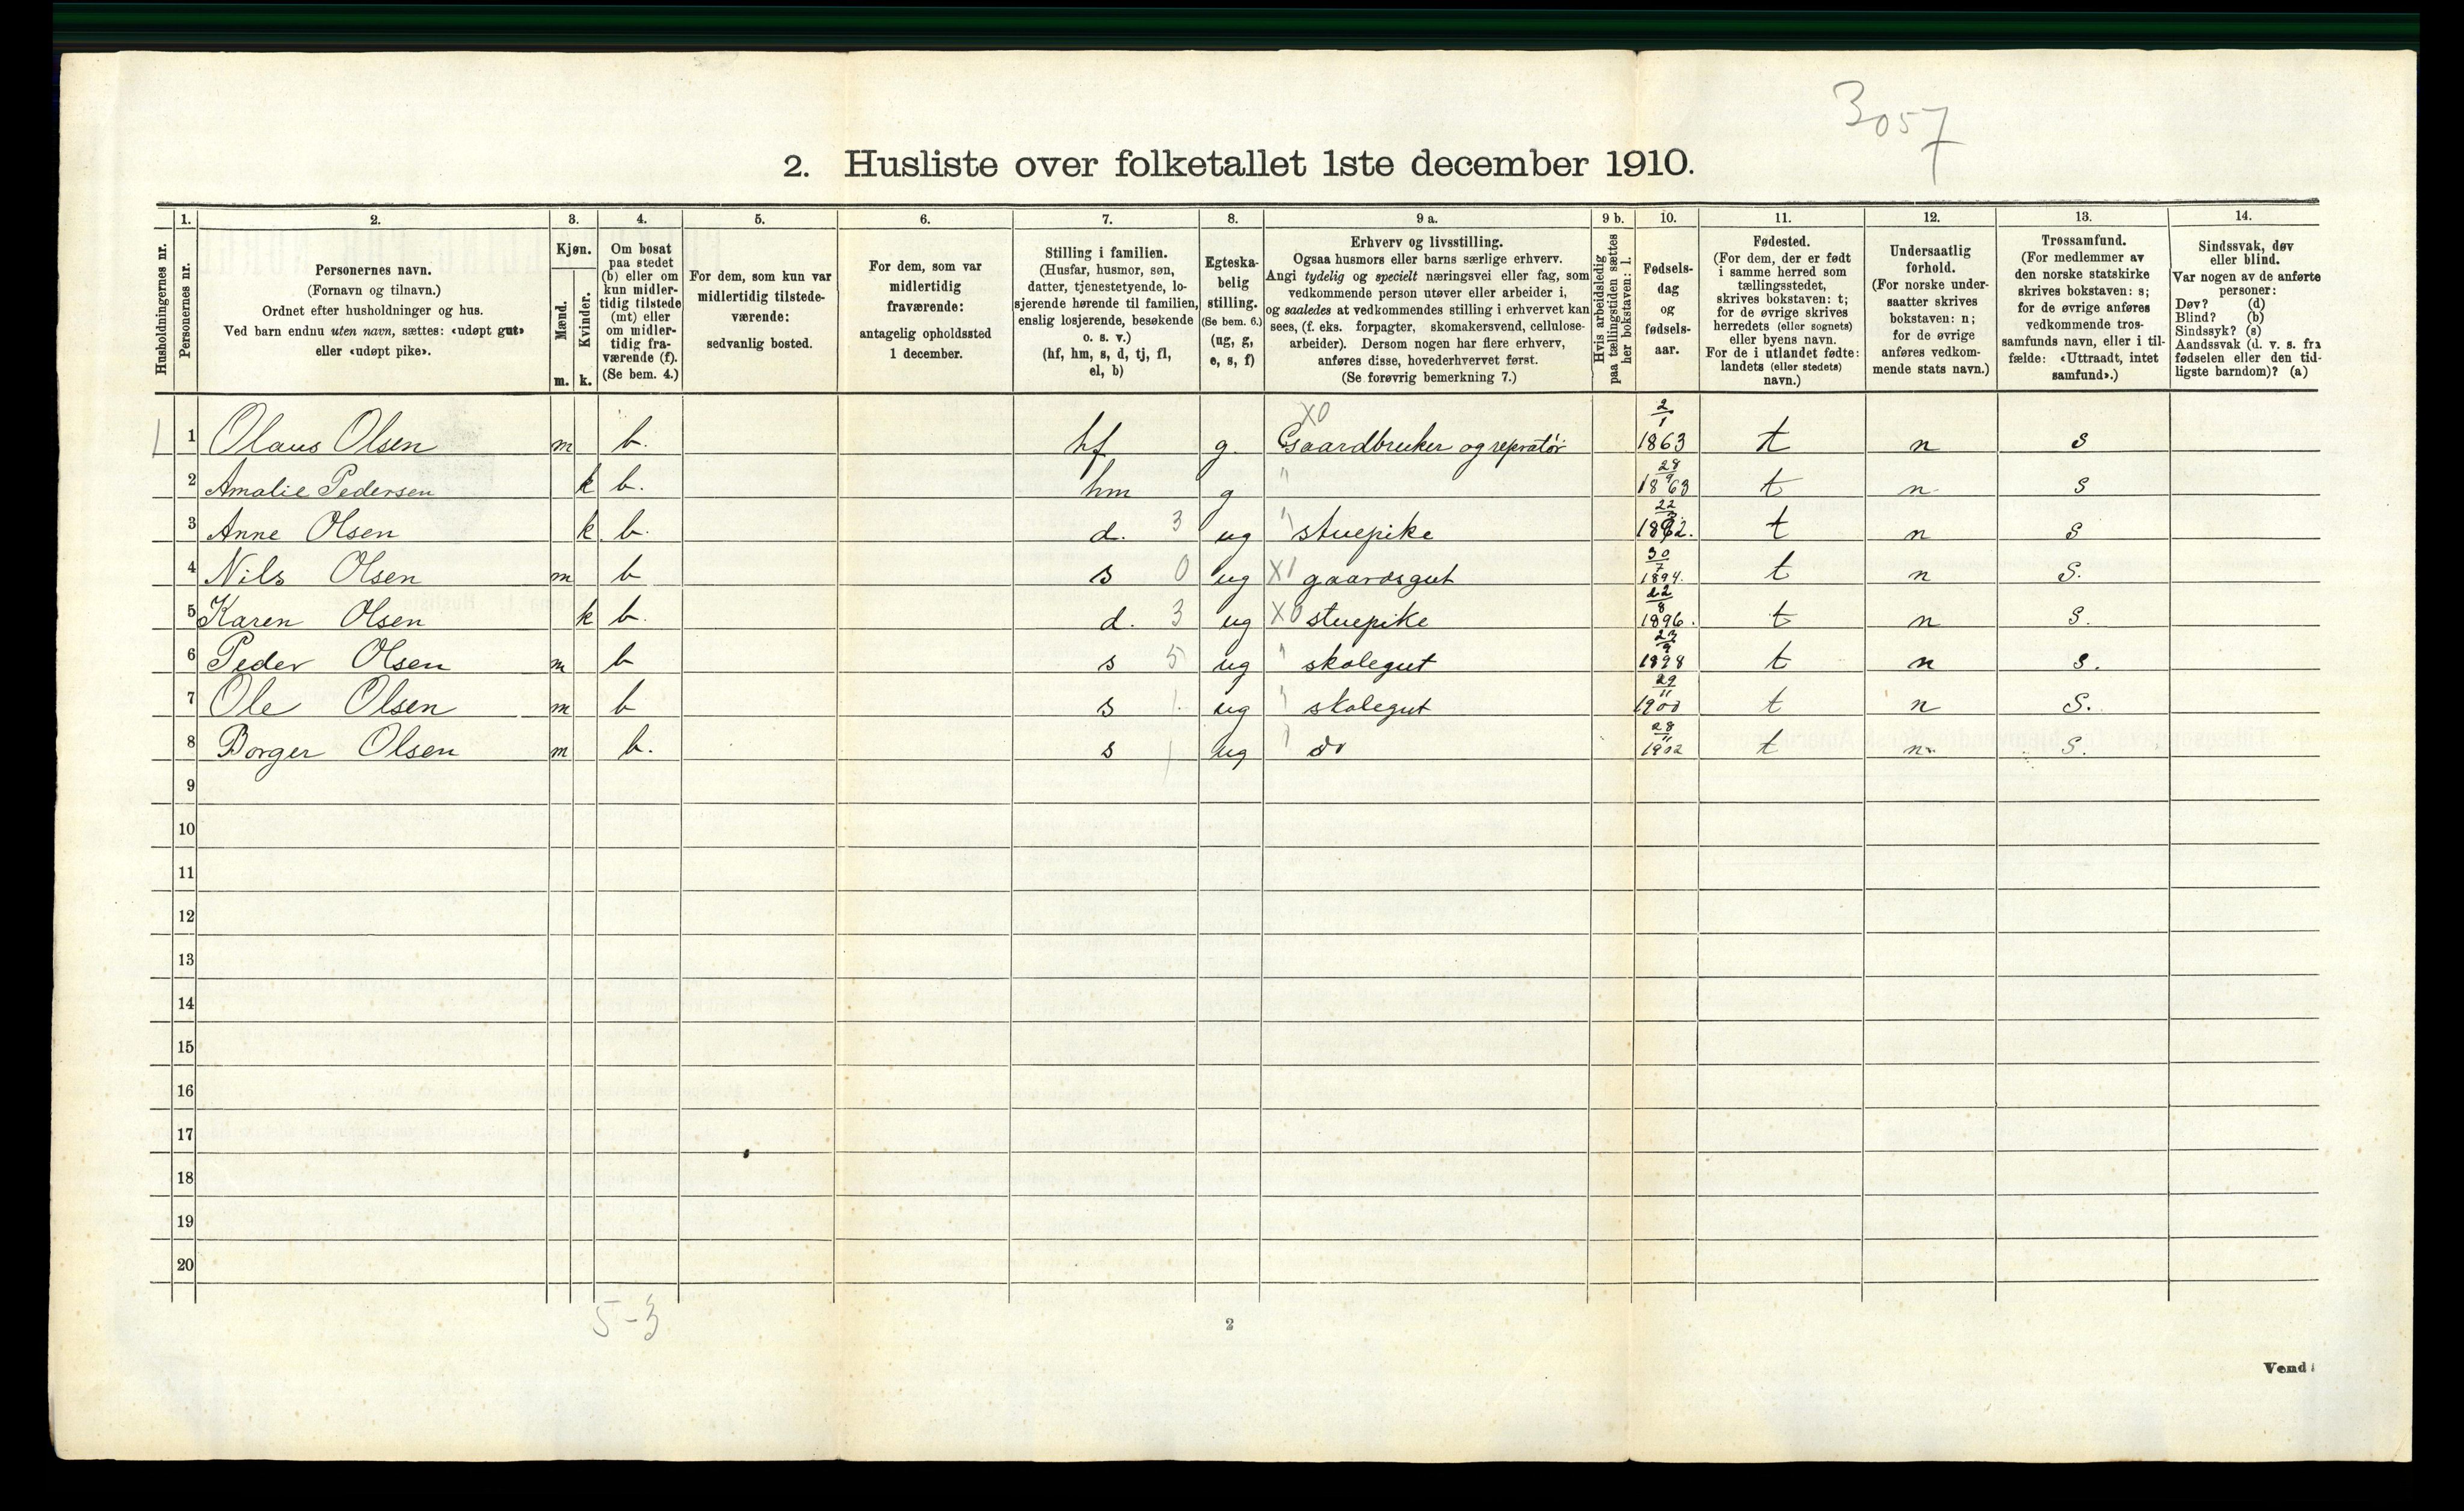 3057
2. Husliste over folketallet 1ste december 1910.
Husholdningernes nr.
1. Personernes nr.
2. Personernes navn.
(Fornavn og tilnavn.)
Ordnet efter husholdninger og hus.
Ved barn endnu uten navn, sættes: «udøpt gut»
eller «udøpt pike».
3. Kjøn.
Mænd. m.
Kvinder. k.
4. Om bosat
paa stedet
(b) eller om
kun midler-
tidig tilstede
(mt) eller
om midler-
tidig fra-
værende (f).
(Se bem. 4.)
5. For dem, som kun var
midlertidig tilstede-
værende:
sedvanlig bosted.
6. For dem, som var
midlertidig
fraværende:
antagelig opholdssted
1 december.
7. Stilling i familien.
(Husfar, husmor, søn,
datter, tjenestetyende, lo-
sjerende hørende til familien,
enslig losjerende, besøkende
o. s. v.)
(hf, hm, s, d, tj, fl,
el, b)
8. Egteska-
belig
stilling.
(Se bem. 6.)
(ug, g,
e, s, f)
9 a. Erhverv og livsstilling.
Ogsaa husmors eller barns særlige erhverv.
Angi tydelig og specielt næringsvei eller fag, som
vedkommende person utøver eller arbeider i,
og saaledes at vedkommendes stilling i erhvervet kan
sees, (f. eks. forpagter, skomakersvend, cellulose-
arbeider). Dersom nogen har flere erhverv,
anføres disse, hovederhvervet først.
(Se forøvrig bemerkning 7.)
9 b. Hvis arbeidsledig
paa tællingstiden sættes
her bokstaven: l.
10. Fødsels-
dag
og
fødsels-
aar.
11. Fødested.
(For dem, der er født
i samme herred som
tællingsstedet,
skrives bokstaven: t;
for de øvrige skrives
herredets (eller sognets)
eller byens navn.
For de i utlandet fødte:
landets (eller stedets)
navn.)
12. Undersaatlig
forhold.
(For norske under-
saatter skrives
bokstaven: n;
for de øvrige
anføres vedkom-
mende stats navn.)
13. Trossamfund.
(For medlemmer av
den norske statskirke
skrives bokstaven: s;
for de øvrige anføres
vedkommende tros-
samfunds navn, eller i til-
fælde: «Uttraadt, intet
samfund».)
14. Sindssvak, døv
eller blind.
Var nogen av de anførte
personer:
Døv? (d)
Blind? (b)
Sindssyk? (s)
Aandssvak (d. v. s. fra
fødselen eller den tid-
ligste barndom)? (a)
1 1 Olaus Olsen m b. hf g. X0 Gaardbruker og repratør 2/1 1863 t n s
2 Amalie Pedersen k b. hm g " 28/9 1863 t n s
3 Anne Olsen k b. d. 3 ug " stuepike 22/3 1892. t n s
4 Nils Olsen m b s 0 ug X1 gaardsgut 30/7 1894. t n s.
5 Karen Olsen k b. d. 3 ug X0 stuepike 22/8 1896. t n s.
6 Peder Olsen m b s 5 ug " skolegut 23/9 1898 t n s.
7 Ole Olsen m b s 1 ug " skolegut 29/11 1900 t n s.
8 Borger Olsen m b. s 1 ug " do 28/11 1902 t n. s.
9
10
11
12
13
14
15
16
17
18
19
20
5-3
2
Vend!